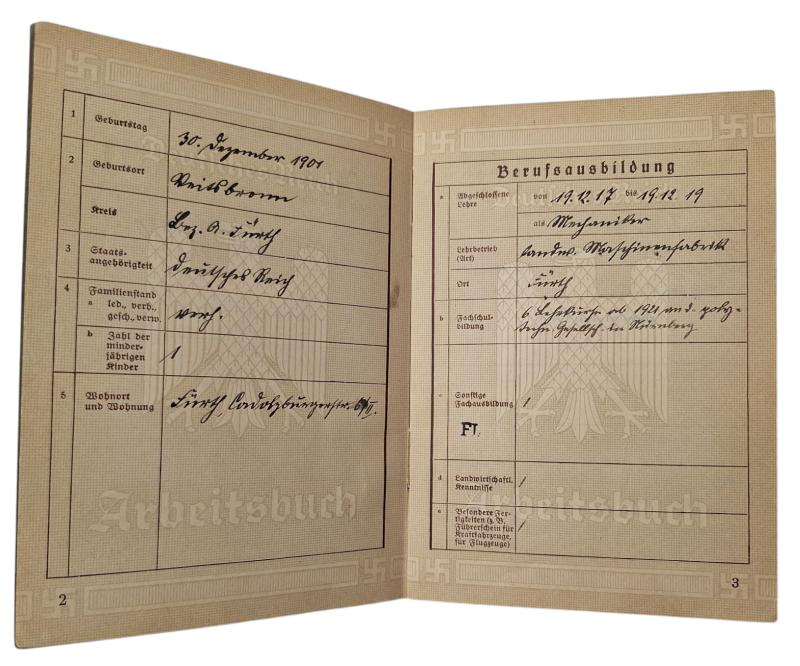 1 Geburtstag 30. Dezember 1901
2 Geburtsort Veitsbronn
Kreis Bez. A. Fürth
3 Staats-
angehörigkeit deutsches Reich
4 Familienstand
a led., verh.,
gesch., verw. verh.
b Zahl der
minder-
jährigen
Kinder 1
5 Wohnort
und Wohnung Fürth Cadolzburgerstr.
Arbeitsbuch
2
Berufsausbildung
a Abgeschlossene
Lehre
von 19.12.17 bis 19.12.19
als Mechaniker
Lehrbetrieb
(Art) landw. Maschinenfabrik
Ort Fürth
b Fachschul-
bildung
6 Lehrkurse ab 1921 an d. poly-
techn. Gesellsch. in Nürnberg
c Sonstige
Fachausbildung /
FT.
d Landwirtschaftl.
Kenntnisse /
e Besondere Fer-
tigkeiten (z. B.
Führerschein für
Kraftfahrzeuge,
für Flugzeuge) /
Arbeitsbuch
3